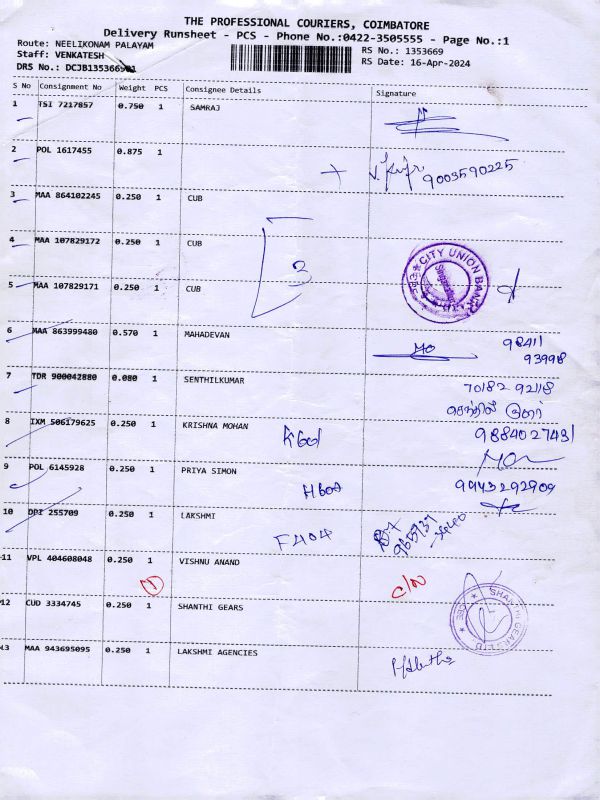 THE PROFESSIONAL COURIERS, COIMBATORE
Delivery Runsheet - PCS - Phone No.:0422-3505555 - Page No.:1
Route: NEELIKONAM PALAYAM
Staff: VENKATESH
DRS No.: DCJB135366901
RS No.: 1353669
RS Date: 16-Apr-2024
S No Consignment No Weight PCS Consignee Details Signature
1 TSI 7217857 0.750 1 SAMRAJ
2 POL 1617455 0.875 1 9003590225
3 MAA 864102245 0.250 1 CUB
4 MAA 107829172 0.250 1 CUB
3
CITY UNION BANK
5 MAA 107829171 0.250 1 CUB
6 MAA 863999480 0.570 1 MAHADEVAN 98411
93998
7 TDR 900042880 0.080 1 SENTHILKUMAR 70182 92118
செந்தில் குமார்
8 IXM 506179625 0.250 1 KRISHNA MOHAN 9884027431
9 POL 6145928 0.250 1 PRIYA SIMON 9943292909
10 DPI 255709 0.250 1 LAKSHMI F404
11 VPL 404608048 0.250 1 VISHNU ANAND C/N
1
12 CUD 3334745 0.250 1 SHANTHI GEARS SHANTHI GEARS LTD
13 MAA 943695095 0.250 1 LAKSHMI AGENCIES